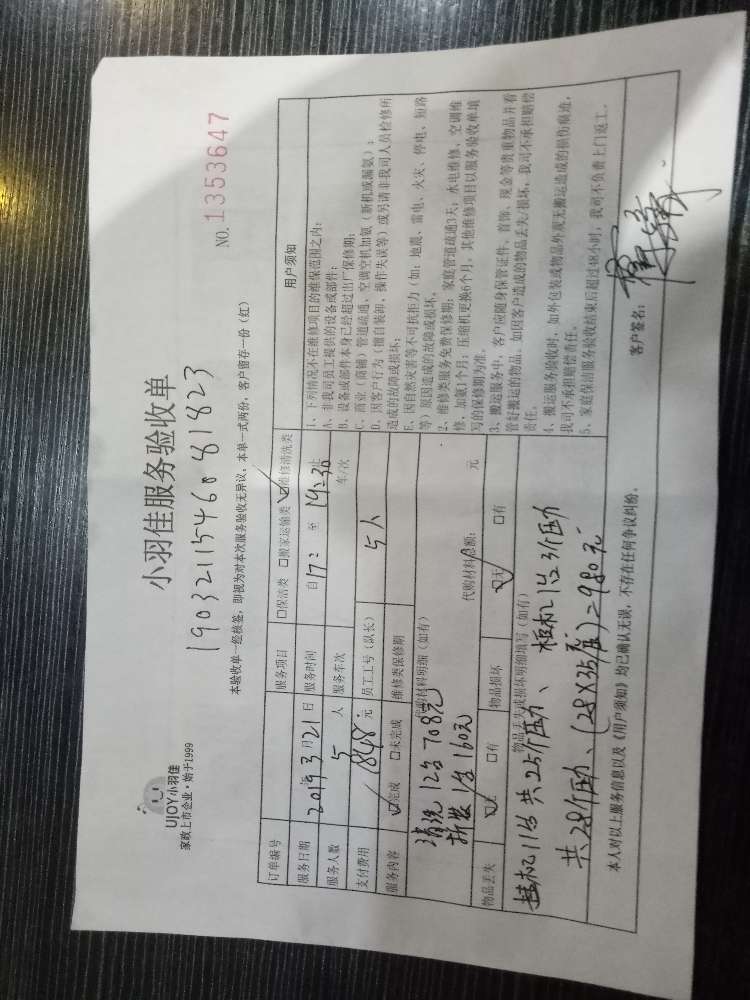 UJOY小羽佳
家政上市企业·始于1999
小羽佳服务验收单
NO. 1353647
190321154608 1823
本验收单一经核签，即视为对本次服务验收无异议，本单一式两份，客户留存一份（红）
订单编号
服务项目 □保洁类 □搬家运输类 ☑维修清洗类
服务日期 2019年3月21日 服务时间 自17: 至19:30止
服务人数 5 人 服务车次 车/次
支付费用 1848元 员工工号（队长） 5人
服务内容 ☑完成 □未完成 维修类保修期
代购材料明细（如有）
清洗12台708元
拆装1台160元
代购材料总额： 元
物品丢失 ☑无 □有 物品损坏 ☑无 □有
物品丢失或损坏明细填写（如有）
挂机11台共25个压力、柜机1台3个压力
共28个压力、(28×35/压)=980元
用户须知
1、下列情况不在维修项目的维保范围之内：
A、非我司员工提供的设备或部件；
B、设备或部件本身已经超过出厂保修期；
C、商业（商铺）管道疏通、空调空机加氨（新机或漏氨）；
D、因客户行为（擅自装卸、操作失误等）或另请非我司人员检修所
造成的故障或损坏；
E、因自然灾害等不可抗拒力（如：地震、雷电、火灾、停电、短路
等）原因造成的故障或损坏。
2、维修类服务免费保修期：家庭管道疏通3天；水电维修、空调维
修、加氨1个月；压缩机更换6个月，其他维修项目以服务验收单填
写的保修期为准。
3、搬运服务中，客户应随身保管证件、首饰、现金等贵重物品并看
管好搬运的物品。如因客户造成的物品丢失/损坏，我司不承担赔偿
责任。
4、搬运服务验收时，如外包装或物品外观无搬运造成的损伤痕迹，
我司不承担赔偿责任。
5、家庭保洁服务验收结束后超过48小时，我司不负责上门返工。
本人对以上服务信息以及《用户须知》均已确认无误，不存在任何争议纠纷。
客户签名：